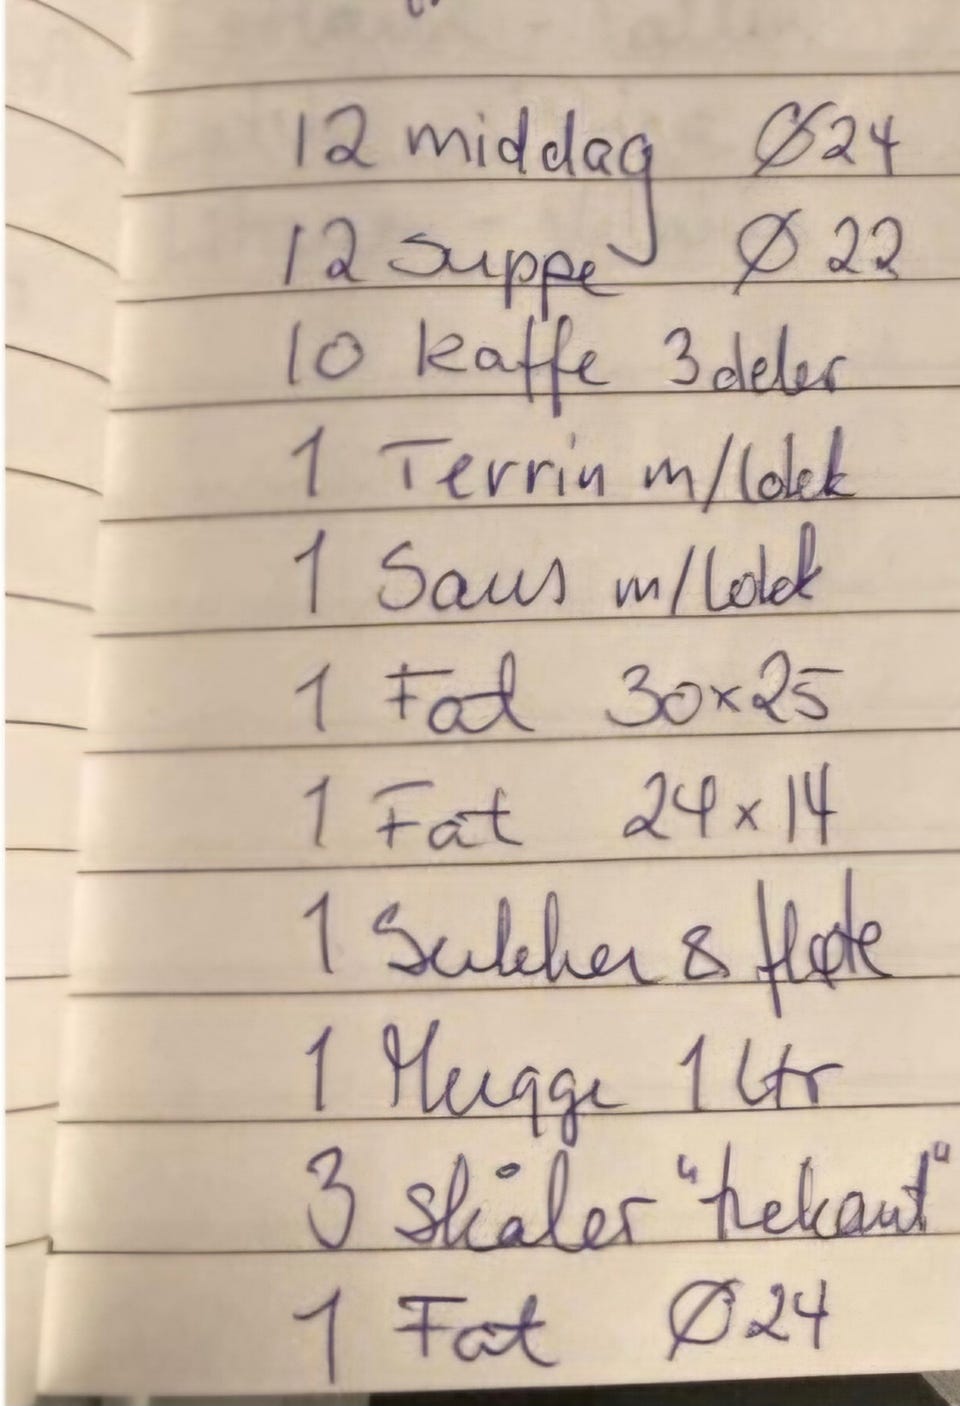 12 middag Ø24
12 suppe Ø 22
10 kaffe 3deler
1 Terrin m/lokk
1 Saus m/lokk
1 Fat 30x25
1 Fat 24x14
1 Sukker & fløte
1 Mugge 1 ltr
3 skåler "trekant"
1 Fat Ø24